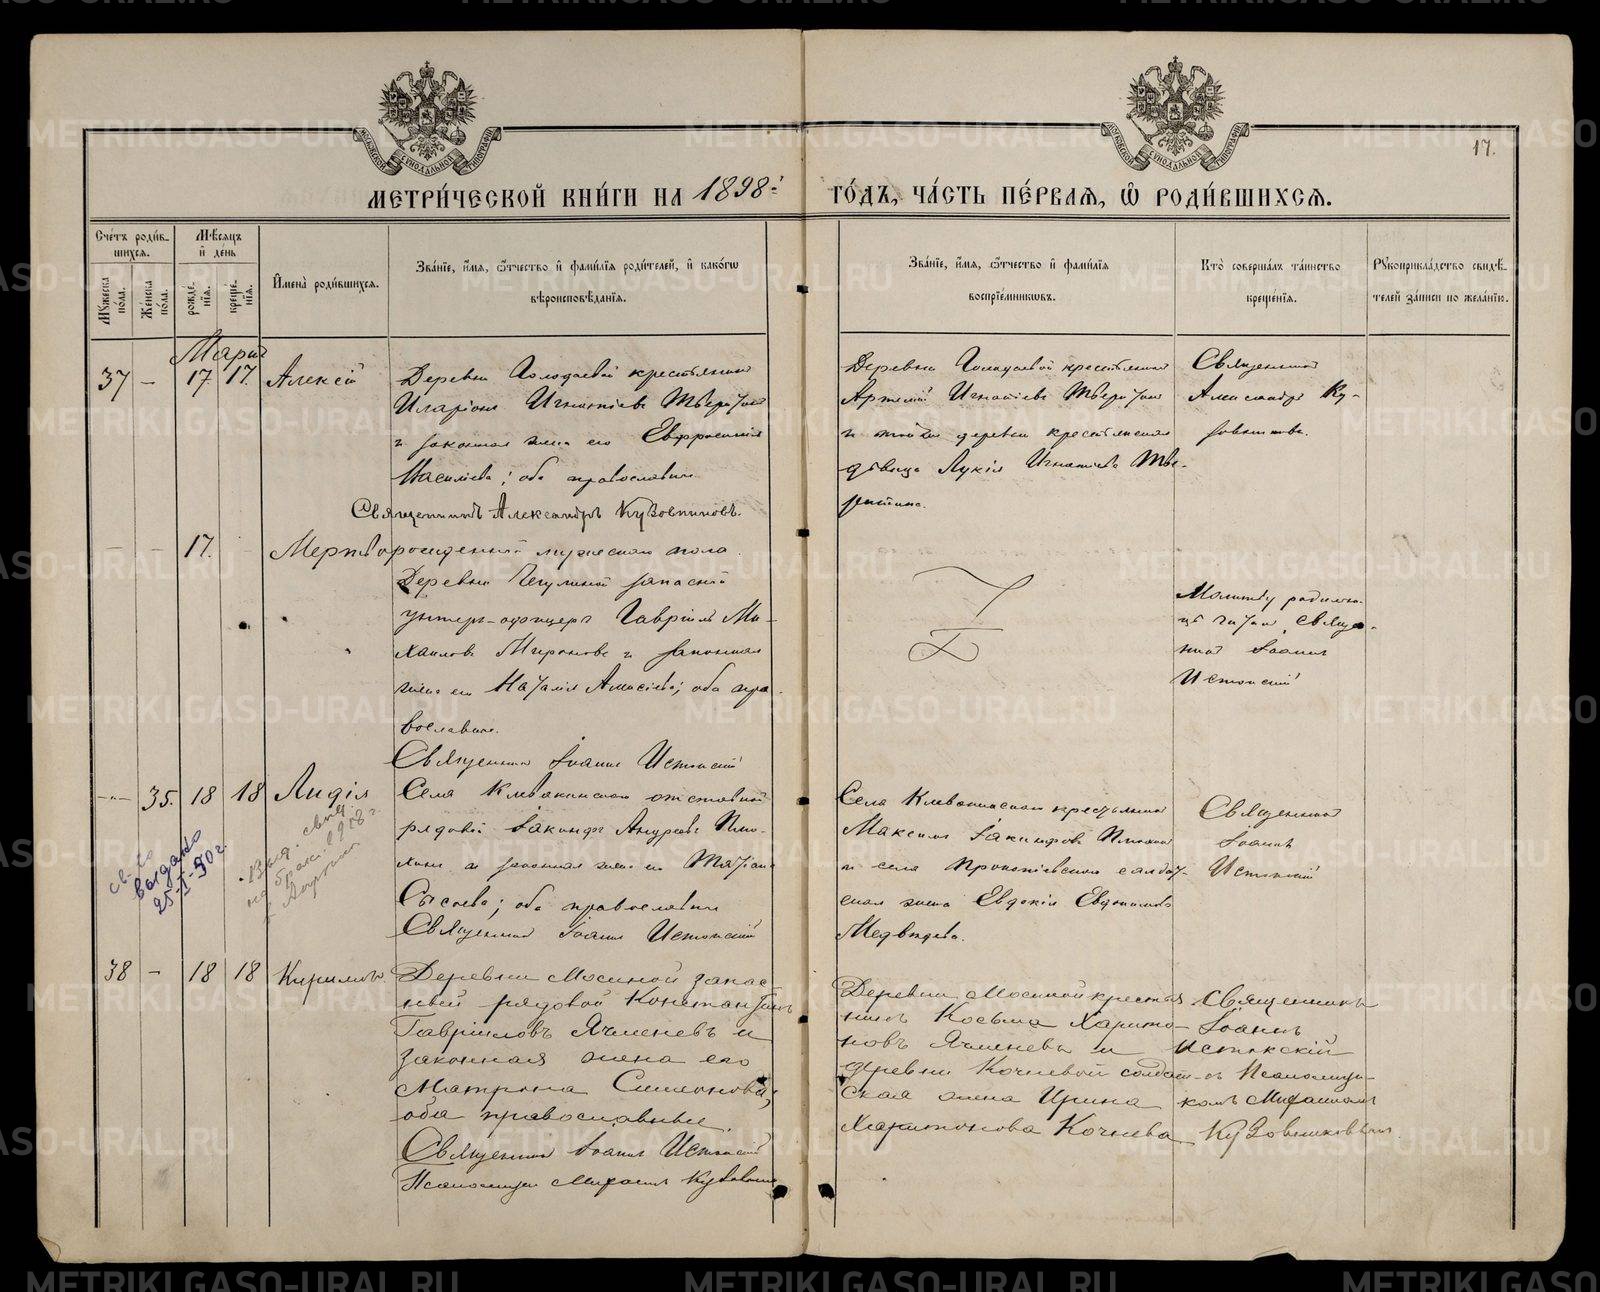 МЕТРИ́ЧЕСКОЙ КНИ́ГИ НА 1898.
ГО́ДЪ, ЧА́СТЬ ПЕ́РВАЯ, Ѡ РОДИ́ВШИХСЯ.
17.
Сче́тъ роди́в-
шихся.
Мѣ́сяцъ
и҆ де́нь
Му́жеска
по́ла.
Же́нска
по́ла.
рожде́-
нїѧ.
креще́-
нїѧ.
И҆мена̀ роди́вшихся.
Зва́нїе, и҆́мѧ, ѻ҆́тчество и҆ фами́лїѧ роди́телей, и҆ како́гѡ
вѣроисповѣ́данїѧ.
Зва́нїе, и҆́мѧ, ѻ҆́тчество и҆ фами́лїѧ
воспрїе́мникѡвъ.
Кто̀ соверша́лъ та́инство
креще́нїѧ.
Рукоприкла́дство свидѣ́-
телей за́писи по жела́нїю.
Мартъ
37 - 17. 17. Алексѣй
Деревни Колодаевой крестьянинъ
Иларіонъ Игнатіевъ
и законная жена его Евфросинія
оба православные
Священникъ Александръ Кузовниковъ.
Деревни крестьянинъ
Артемій Игнатіевъ
и той же деревни крестьянская
дѣвица Лукія Игнатіева Тве-
ритина.
Священникъ
Александръ Ку-
зовниковъ.
17. Мертворожденный мужескаго пола
Деревни запасный
унтеръ-офицеръ Гавріилъ Ми-
хаиловъ Мироновъ и законная
жена его Наталія оба пра-
вославные.
Священникъ Іоаннъ Истокскій
Молитву родильни-
цѣ читалъ Свяще-
нникъ Іоаннъ
Истокскій
35. 18 18 Лидія
Села Клевакинскаго отставной
рядовой Іакинфъ Андреевъ
и законная жена его Татіана
Сысоева; оба православные
Священникъ Іоаннъ Истокскій
Села Клевакинскаго крестьянинъ
Максимъ Іакинфовъ
и села Прокопіевскаго солдат-
ская жена Евдокія Евдокимова
Медвѣдева.
Священникъ
Іоаннъ
Истокскій
св-во
выдано
25-I-50 г.
Выд. свид.
на брак. 1918 г.
38 - 18 18 Кириллъ
Деревни Мосиной запас-
ный рядовой Константинъ
Гавріиловъ Ячменевъ и
законная жена его
Матрона Симеонова;
оба православные.
Священникъ Іоаннъ Истокскій
Псаломщикъ Митрофанъ Кузовниковъ
Деревни Мосиной крестья-
нинъ Косьма Харито-
новъ Ячменевъ и
деревни Кочневой солдат-
ская жена Ирина
Харитонова Кочнева
Священникъ
Іоаннъ
Истокскій
съ Псаломщи-
комъ Митрофаномъ
Кузовниковымъ.